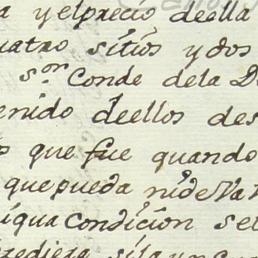 a y el precio de ella
uatro sitios y dos
s.or Conde dela D
enido deellos des
que fue quando
que pueda ni deva
iqua Condicion se